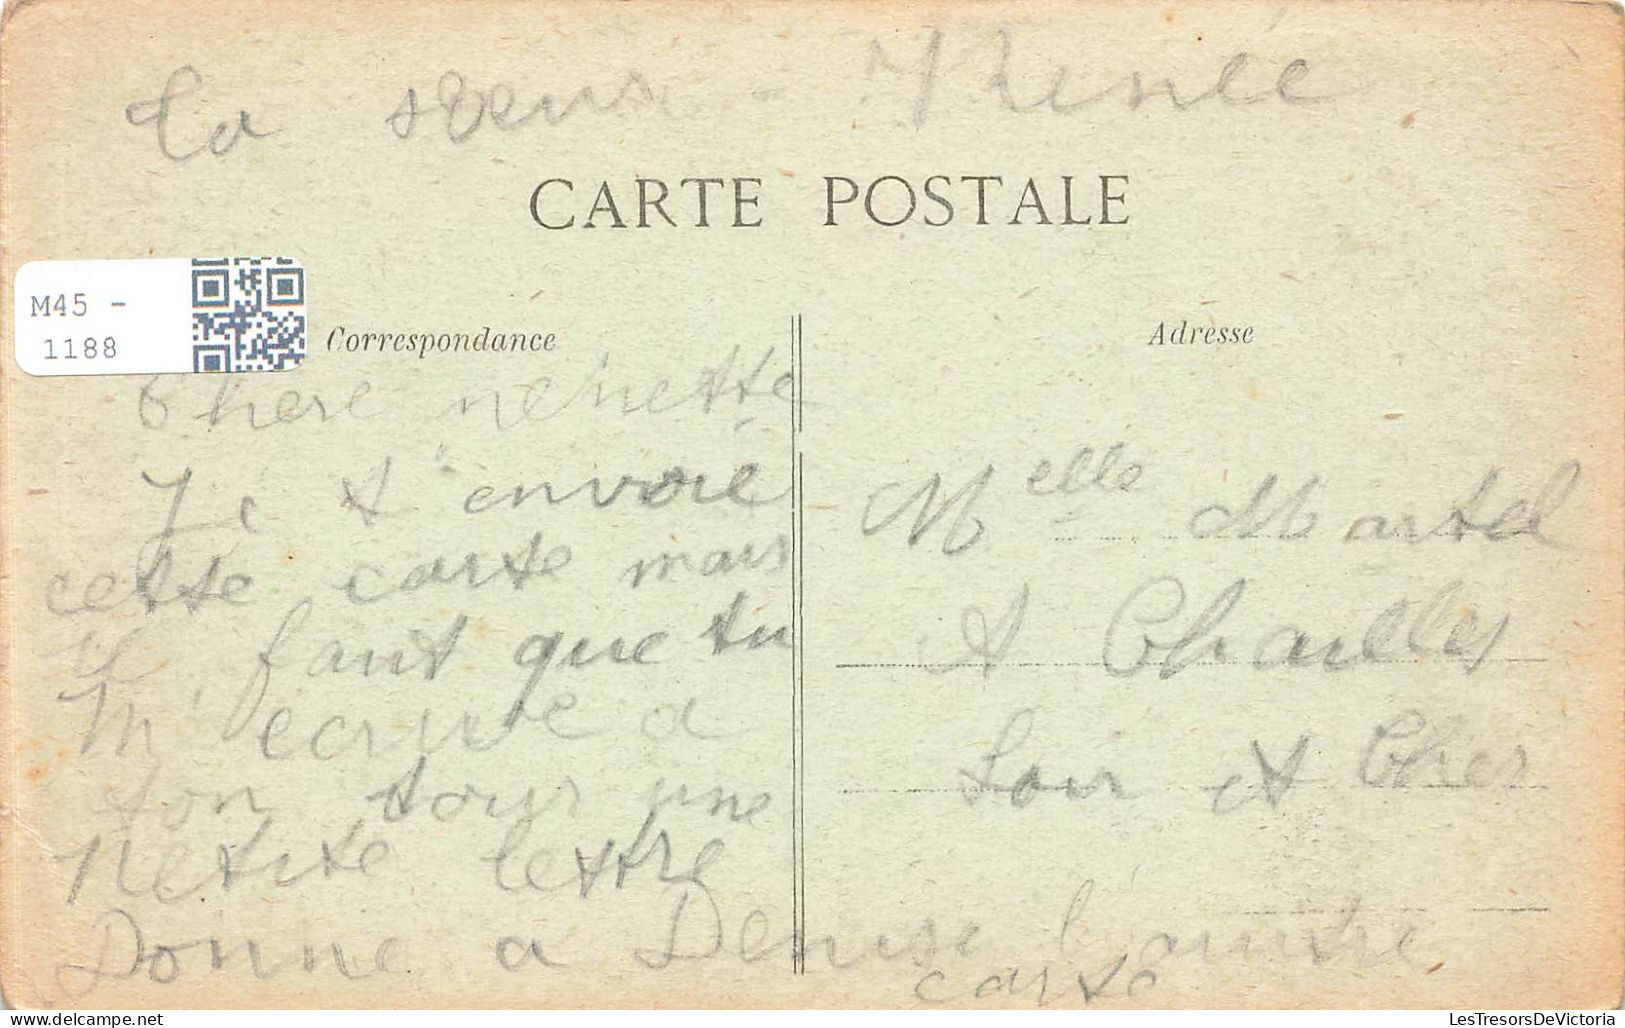 Ta sœur Renée
CARTE POSTALE
M45 -
1188
Correspondance
Adresse
Chere nénette
Je t'envoie
cette carte mais
il faut que tu
m'écrive a
ton tour une
petite lettre
Donne a Denise l'autre
carte
Melle Martel
A Chailles
Loir et Cher
LesTresorsDeVictoria